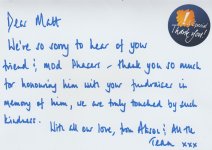 Dear Matt
Thank you!
We're so sorry to hear of your
friend & mod Phaser - thank you so much
for honouring him with your fundraiser in
memory of him, we are truly touched by such
kindness.
With all our love, from & All the
Team xxx